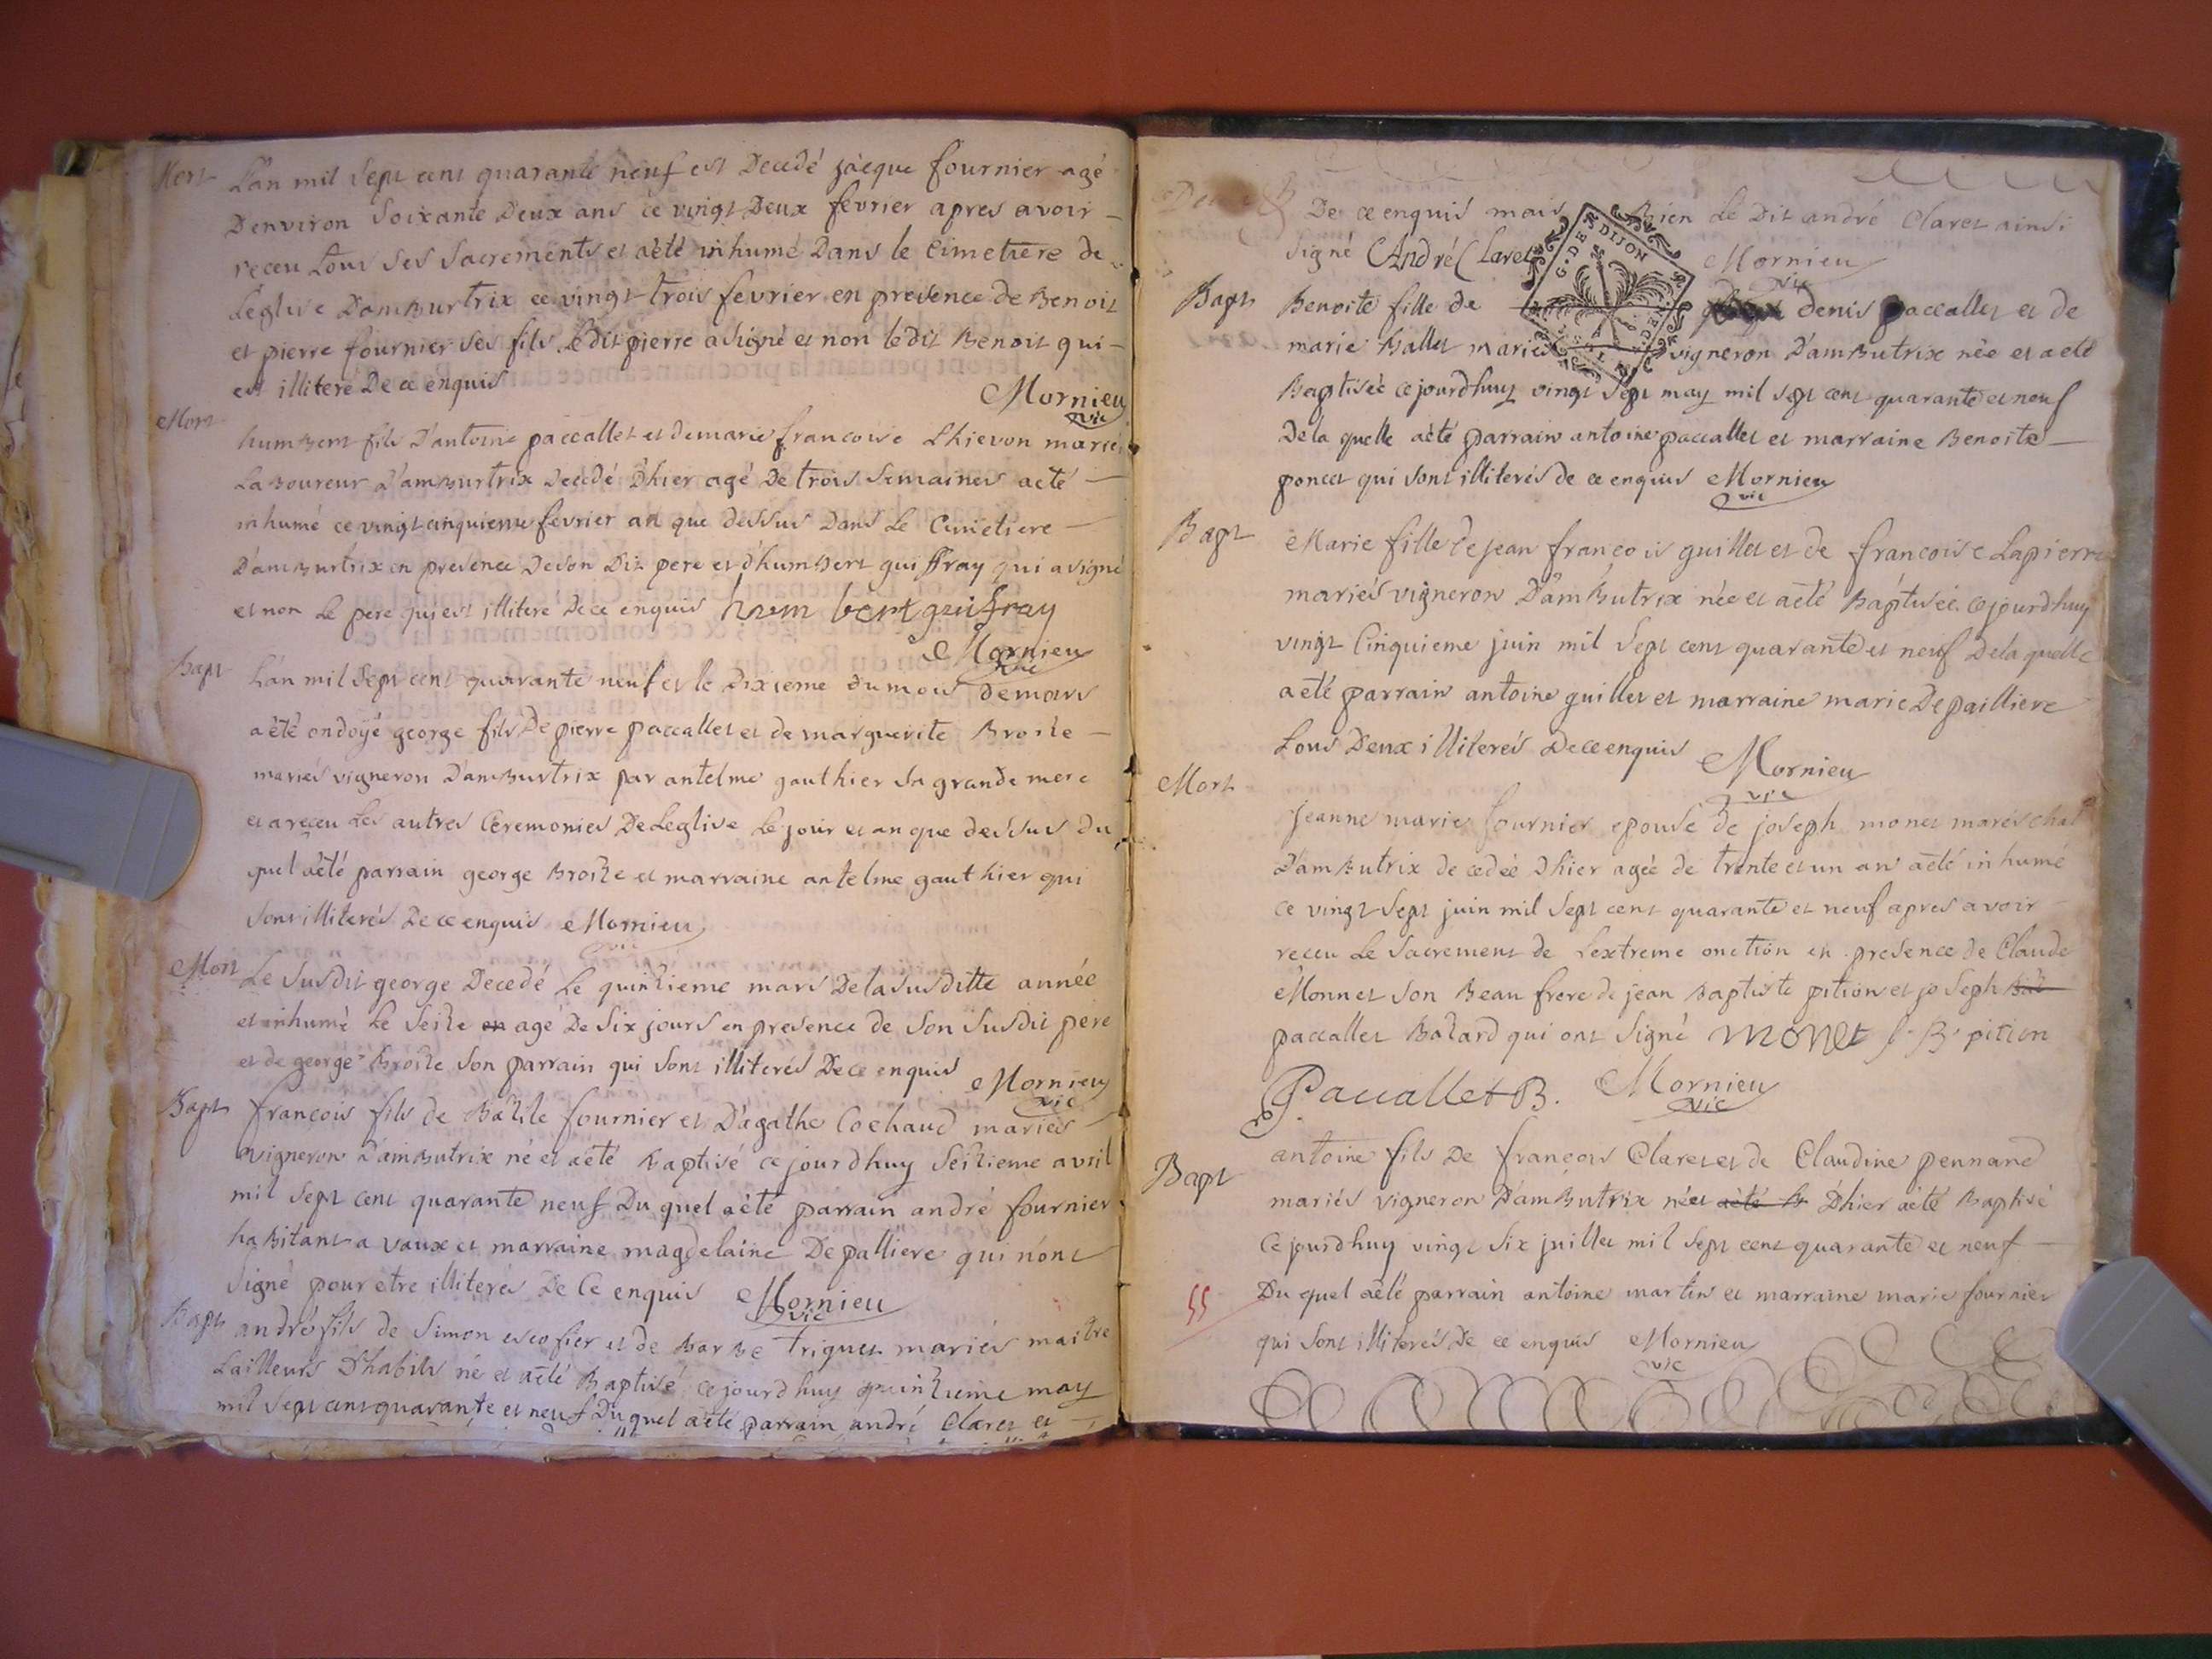 Mort
L'an mil Sept cent quarante neuf est Decedé jacque fournier agé
D'environ Soixante Deux ans ce vingt Deux fevrier apres avoir
receu tous ses Sacrements et aété inhumé Dans le Cimetiere de
L'eglise D'amburtrix ce vingt-trois fevrier en presence de Benoit
et pierre fournier ses fils Ledit pierre a signé et non ledit Benoit qui
est illiteré De ce enquis
Mornieu
vic
Mort
humbert fils D'antoine paccallet et demarie francoise Lhievon mariés
Laboureur D'amburtrix decedé D'hier agé De trois Semaines aeté
inhumé ce vingt cinquieme fevrier an que dessus Dans Le Cimetiere
D'amburtrix en presence Deson Dit pere et d'humbert guiffray qui a signé
et non Le pere qui est illiteré Dece enquis hum bert guifray
Mornieu
vic
Bapt
L'an mil Sept cent quarante neuf et le Dixieme du mois demars
aété ondoyé george fils De pierre paccallet et de marguerite Broise
mariés vigneron D'amburtrix par antelme gauthier Sa grande mere
et a receu Les autres Ceremonies DeLeglise Le jour et an que dessus du
quel aété parrain george Broise et marraine antelme gauthier qui
sont illiterés De ce enquis Mornieu
vic
Mort
Le Susdit george Decedé Le quinzieme mars Delasusditte année
et inhumé Le Seize en agé De Six jours en presence de Son Susdit pere
et de george Broise Son parrain qui sont illiterés Dece enquis
Mornieu
vic
Bapt
francois fils de Bazile fournier et D'agathe Cochaud mariés
vigneron D'ambutrix né et aété Baptisé cejourdhuy Seizieme avril
mil Sept cent quarante neuf Du quel aété parrain andré fournier
habitant a vaux et marraine magdelaine Depalliere qui n'ont
Signé pour etre illiterés De Ce enquis Mornieu
vic
Bapt
andré fils de Simon escofier et de Barbe triquet mariés maitre
tailleurs D'habits né et aété Baptisé cejourdhuy quinzieme may
mil Sept cent quarante et neuf Du quel aété parrain andré Claret et
De ce enquis mais Bien Le Dit andré Claret ainsi
Signé André Claret
Mornieu
vic
G. DE DIJON
Bapt
Benoite fille de denis paccallet et de
marie Ballet mariés vigneron D'ambutrix née et aeté
Baptisée cejourdhuy vingt Sept may mil sept cent quarante et neuf
Dela quelle aété parrain antoine paccallet et marraine Benoite
poncet qui sont illiterés de ce enquis Mornieu
vic
Bapt
Marie fille de jean francois guillet et de francoise Lapierre
mariés vigneron D'ambutrix née et aété Baptisée cejourdhuy
vingt Cinquieme juin mil Sept cent quarante et neuf Dela quelle
aété parrain antoine guillet et marraine marie Depailliere
tous Deux illiterés Dece enquis Mornieu
vic
Mort
jeanne marie fournier epouse de joseph monet mareschal
D'ambutrix decedée d'hier agée de trente et un an aété inhumé
ce vingt Sept juin mil Sept cent quarante et neuf apres avoir
receu Le Sacrement de L'extreme onction en presence de Claude
Monnet Son Beau frere de jean Baptiste pition et joseph Bat
paccallet Batard qui ont Signé monet J. B. pition
Paccallet B. Mornieu
vic
Bapt
antoine fils De françois Claret et de Claudine pennand
mariés vigneron D'ambutrix né et aété B D'hier aété Baptisé
Cejourdhuy vingt Six juillet mil Sept cent quarante et neuf
55
Du quel aété parrain antoine martin et marraine marie fournier
qui sont illiterés De ce enquis Mornieu
vic